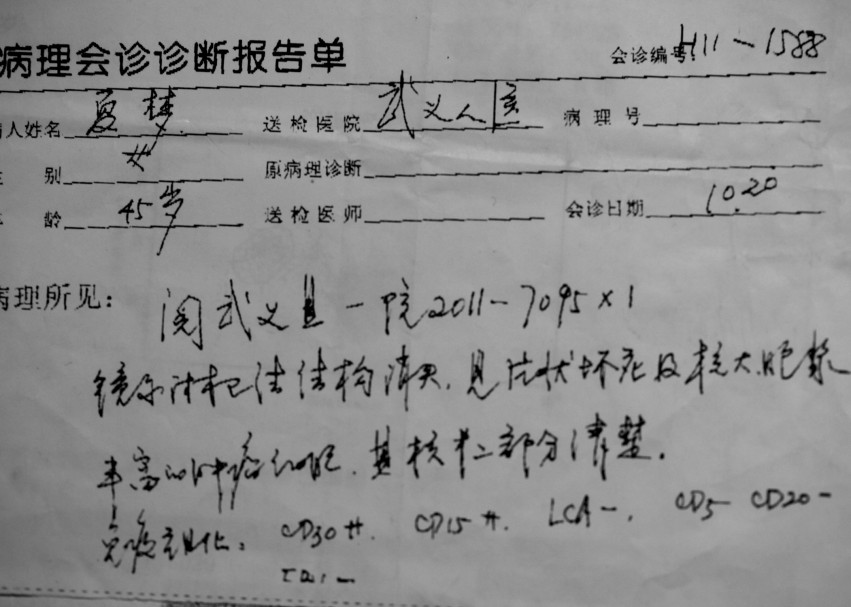 病理会诊诊断报告单
会诊编号 H11-1588
人姓名 夏梦 送检医院 武义人医 病理号
别 女 原病理诊断
龄 45岁 送检医师 会诊日期 10.20
病理所见: 阅武义县一院2011-7095×1
镜示淋巴结结构消失,见片状坏死及核大胞浆
丰富的肿瘤细胞,其核仁部分清楚。
免疫组化: CD30++. CD15++. LCA-, CD5- CD20-